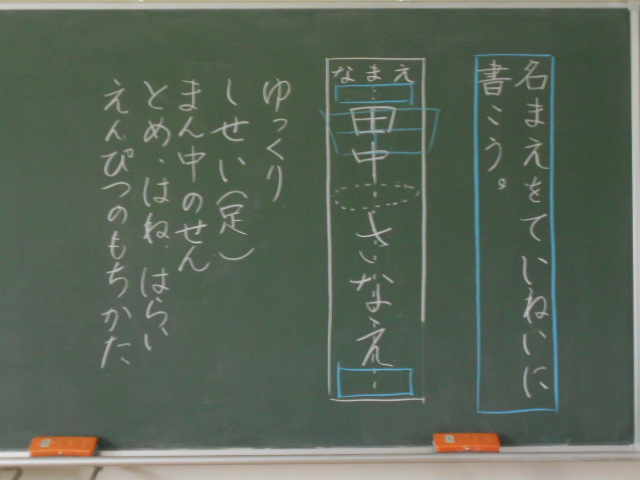 名まえをていねいに
書こう。
なまえ
田中 さなえ
ゆっくり
しせい(足)
まん中のせん
とめ、はね、はらい
えんぴつのもちかた